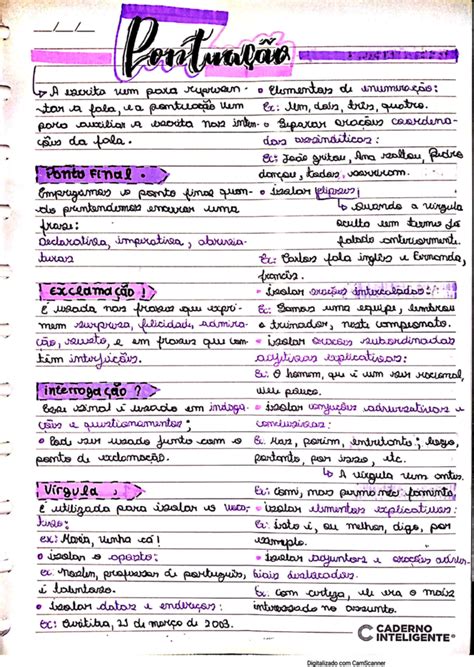 __/__/__
Pontuação
↳ A escrita vem para represen-
tar a fala, e a pontuação vem
para auxiliar a escrita nas inten-
ções da fala.
Ponto Final.
Empregamos o ponto final quan-
do pretendemos encerrar uma
frase:
Declarativa, imperativa, abrevia-
turas
Exclamação!
É usada nas frases que expri-
mem surpresa, felicidade, admira-
ção, susto, e em frases que con-
têm interjeições.
Interrogação?
Esse sinal é usado em indaga-
ções e questionamentos;
• Pode ser usado junto com o
ponto de exclamação.
Vírgula
É utilizada para isolar o voca-
tivo:
ex: Maria, venha cá!
• isolar o aposto:
Ex: professor de português,
é talentoso.
• isolar datas e endereços:
Ex: Curitiba, 21 de março de 2003.
• Elementos de enumeração:
Ex: Um, dois, três, quatro.
• Separar orações coordena-
das assindéticas:
Ex: João gritou, Ana saltou, Pedro
dançou, todos sorriram.
• isolar elipses;
↳ Quando a vírgula
oculta um termo já
falado anteriormente.
Ex: Carlos fala inglês e Fernanda,
francês.
• isolar orações intercaladas:
Ex: Somos uma equipe, lembrou
o treinador, neste campeonato.
• isolar orações subordinadas
adjetivas explicativas:
Ex: O homem, que é um ser racional,
pouco.
• isolar conjunções adversativas e
conclusivas:
Ex: Mas, porém, entretanto; logo,
portanto, por isso, etc.
↳ A vírgula vem antes.
Ex: Comi, mas faminto,
• isolar elementos explicativos:
Ex: Isto é, ou melhor, digo, por
exemplo.
• isolar adjuntos e orações adver-
biais deslocados.
Ex: Com certeza, ele era o mais
interessado no assunto.
CADERNO
INTELIGENTE®
Digitalizado com CamScanner